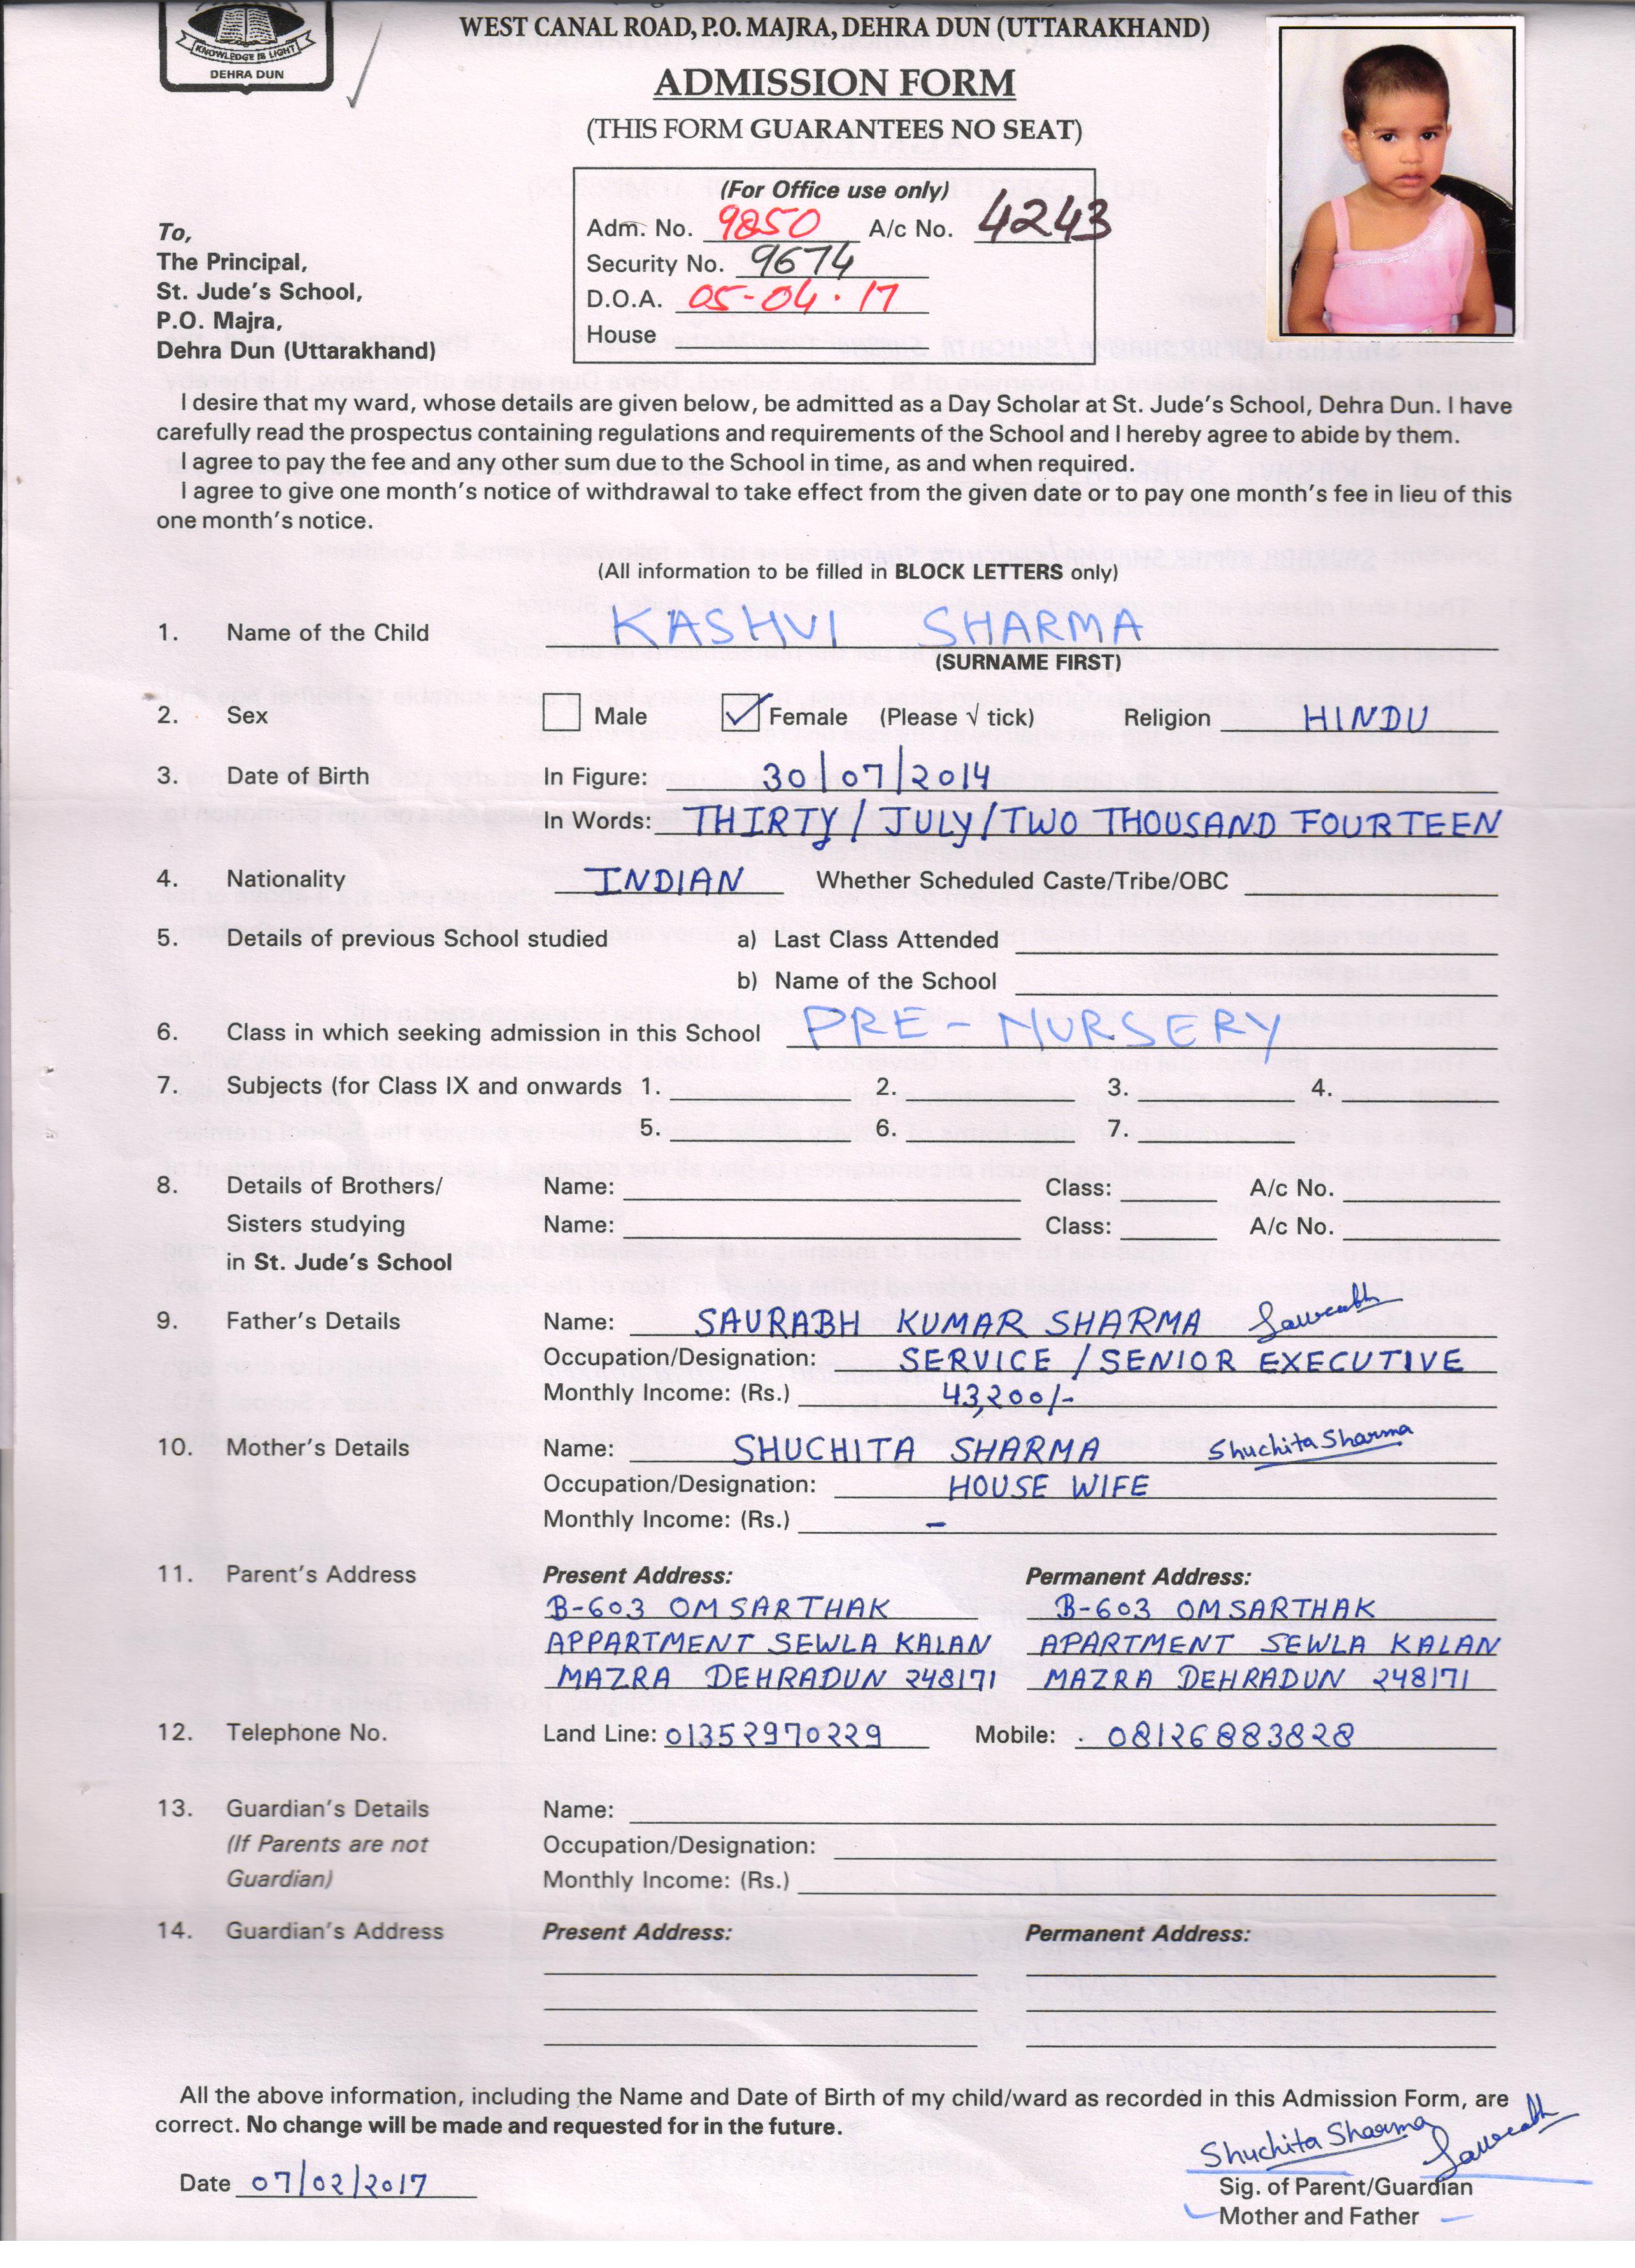 WEST CANAL ROAD, P.O. MAJRA, DEHRA DUN (UTTARAKHAND)
KNOWLEDGE IS LIGHT
DEHRA DUN
ADMISSION FORM
(THIS FORM GUARANTEES NO SEAT)
(For Office use only)
Adm. No. 9850 A/c No. 4243
Security No. 9674
D.O.A. 05-04.17
House
To,
The Principal,
St. Jude's School,
P.O. Majra,
Dehra Dun (Uttarakhand)
I desire that my ward, whose details are given below, be admitted as a Day Scholar at St. Jude's School, Dehra Dun. I have
carefully read the prospectus containing regulations and requirements of the School and I hereby agree to abide by them.
I agree to pay the fee and any other sum due to the School in time, as and when required.
I agree to give one month's notice of withdrawal to take effect from the given date or to pay one month's fee in lieu of this
one month's notice.
(All information to be filled in BLOCK LETTERS only)
1. Name of the Child KASHVI SHARMA
(SURNAME FIRST)
2. Sex Male Female (Please √ tick) Religion HINDU
3. Date of Birth In Figure: 30/07/2014
In Words: THIRTY / JULY / TWO THOUSAND FOURTEEN
4. Nationality INDIAN Whether Scheduled Caste/Tribe/OBC
5. Details of previous School studied a) Last Class Attended
b) Name of the School
6. Class in which seeking admission in this School PRE - NURSERY
7. Subjects (for Class IX and onwards 1. 2. 3. 4.
5. 6. 7.
8. Details of Brothers/ Name: Class: A/c No.
Sisters studying Name: Class: A/c No.
in St. Jude's School
9. Father's Details Name: SAURABH KUMAR SHARMA Saurabh
Occupation/Designation: SERVICE / SENIOR EXECUTIVE
Monthly Income: (Rs.) 43,200/-
10. Mother's Details Name: SHUCHITA SHARMA Shuchita Sharma
Occupation/Designation: HOUSE WIFE
Monthly Income: (Rs.) -
11. Parent's Address Present Address: Permanent Address:
B-603 OM SARTHAK B-603 OM SARTHAK
APPARTMENT SEWLA KALAN APARTMENT SEWLA KALAN
MAZRA DEHRADUN 248171 MAZRA DEHRADUN 248171
12. Telephone No. Land Line: 01352970229 Mobile: 08126883828
13. Guardian's Details Name:
(If Parents are not Occupation/Designation:
Guardian) Monthly Income: (Rs.)
14. Guardian's Address Present Address: Permanent Address:
All the above information, including the Name and Date of Birth of my child/ward as recorded in this Admission Form, are
correct. No change will be made and requested for in the future.
Shuchita Sharma Saurabh
Date 07/02/2017
Sig. of Parent/Guardian
Mother and Father